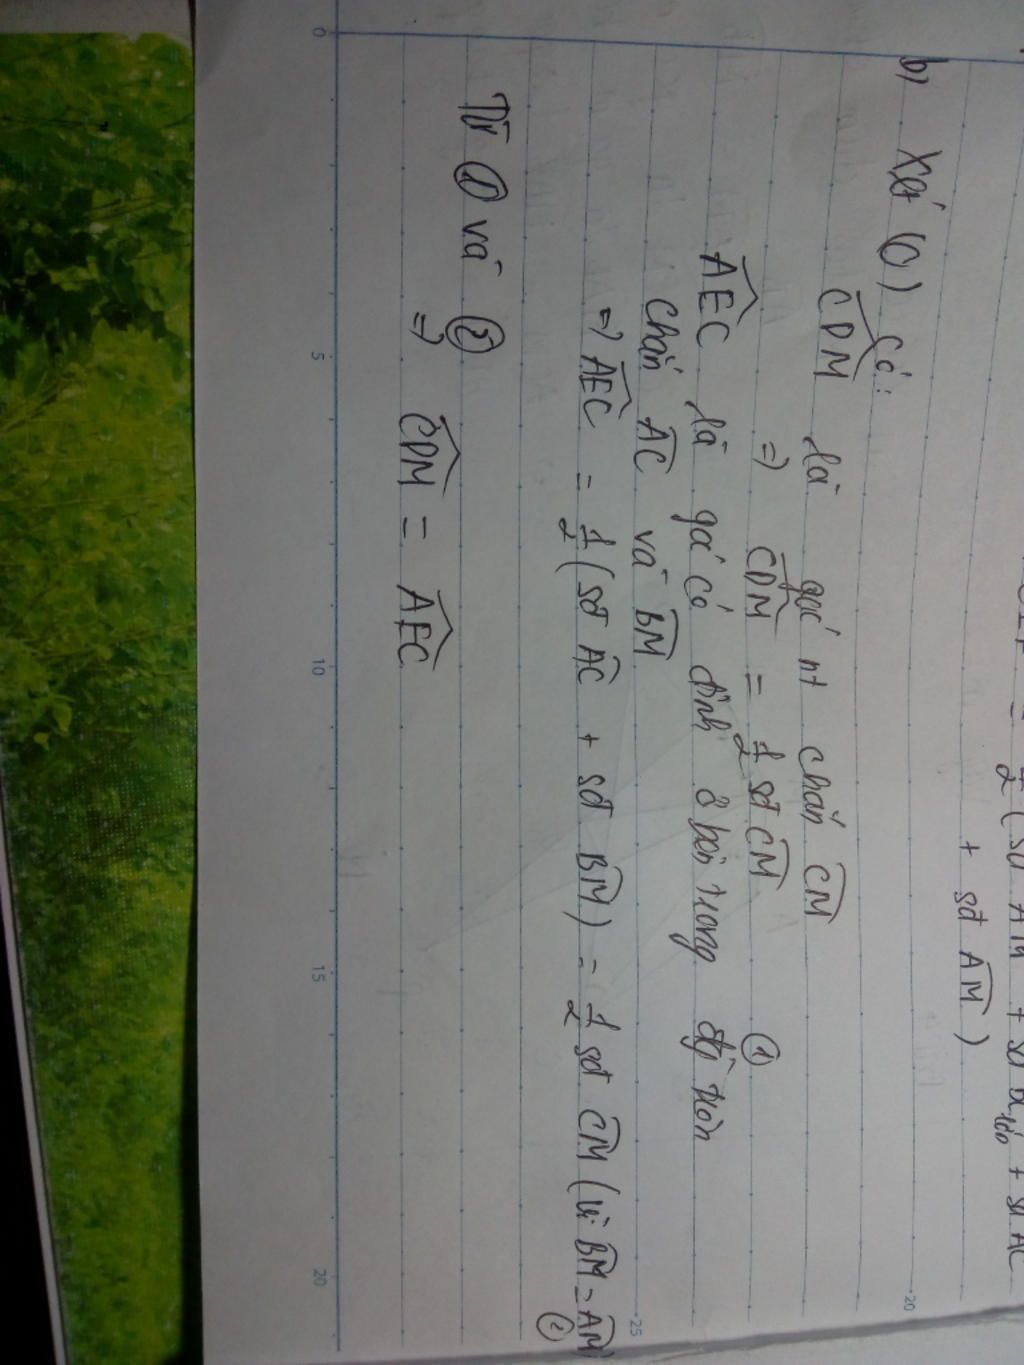 2 (sđ AM + sđ BC lớn + sđ AC
+ sđ AM)
b) Xét (O) có:
CDM là góc nt chắn CM
=> CDM = 1/2 sđ CM (1)
AEC là góc có đỉnh ở bên trong đg tròn
chắn AC và BM
=> AEC = 1/2 (sđ AC + sđ BM) = 1/2 sđ CM (vì BM = AM)
(2)
Từ (1) và (2)
=> CDM = AEC
0 5 10 15 20
20
25